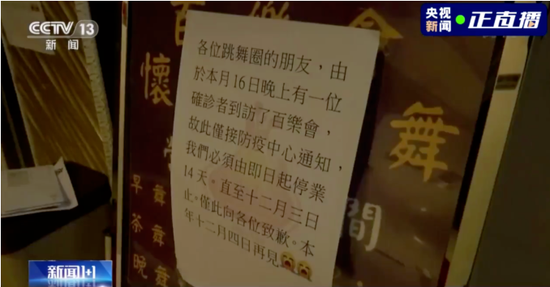 CCTV 13
新闻
央视新闻
正直播
百樂會
各位跳舞圈的朋友，由
於本月16日晚上有一位
確診者到訪了百樂會，
故此僅接防疫中心通知，
我們必須由即日起停業
14天。直至十二月三日
止。僅此向各位致歉。本
年十二月四日再見😭😭
懷
舞
間
早舞
茶舞
晚舞
新闻1+1